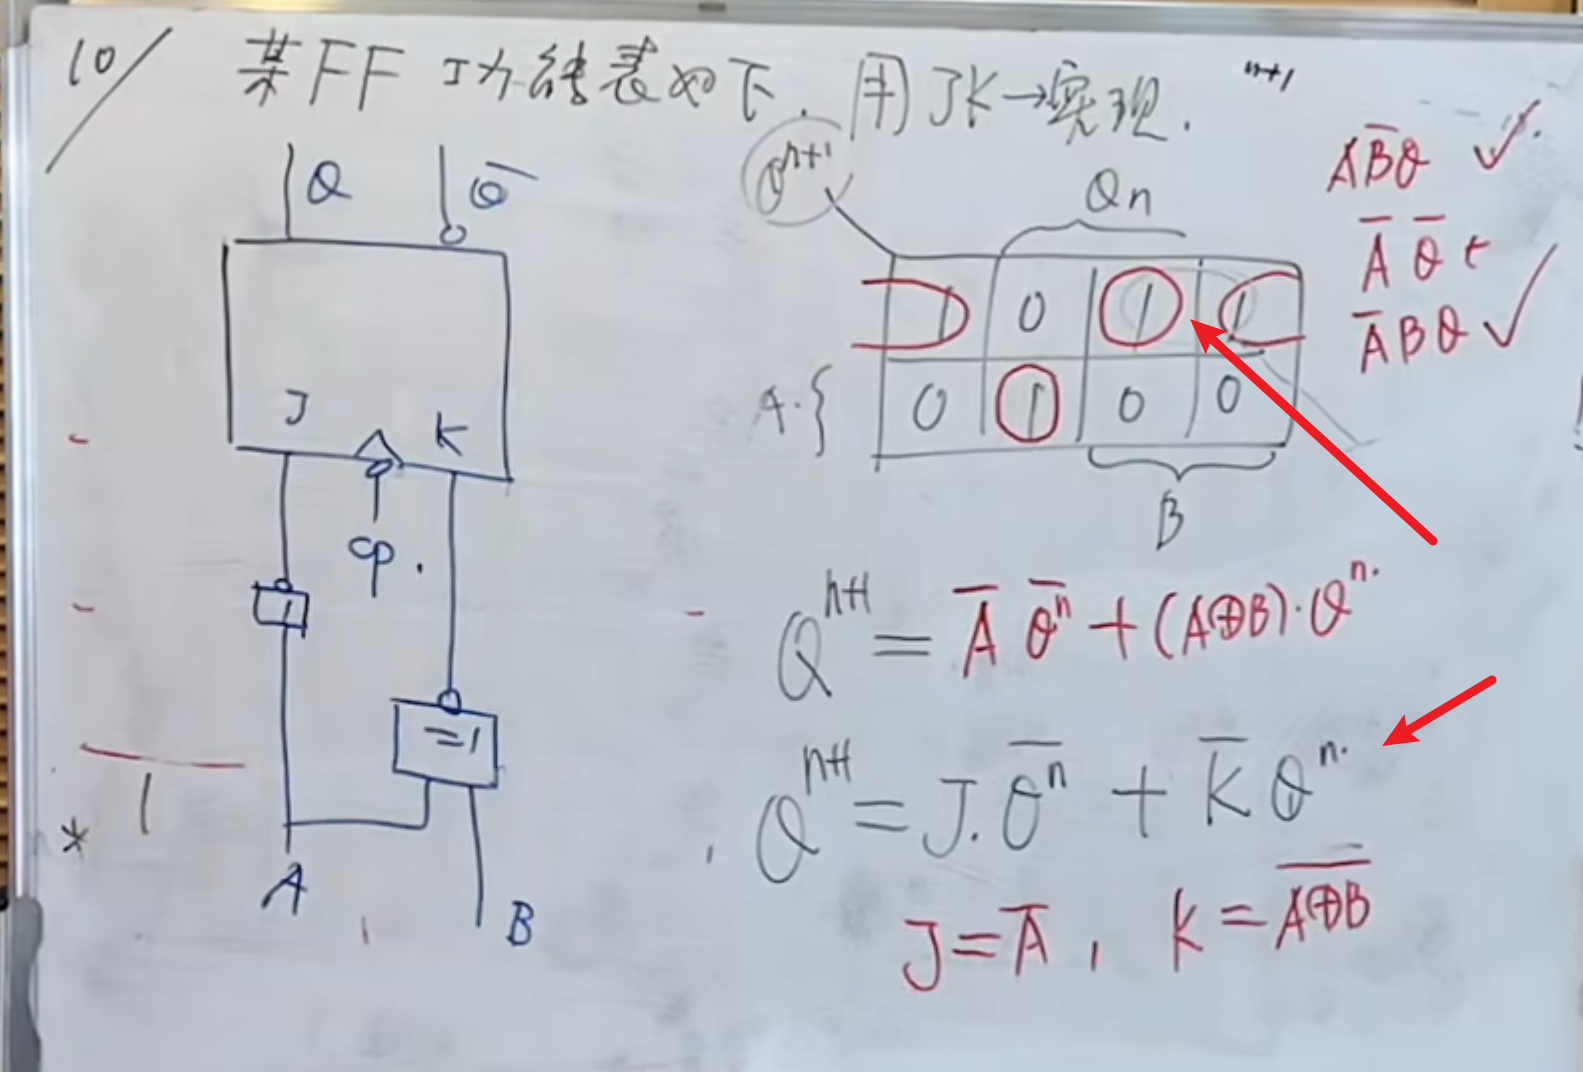 10/ 某FF 功能表如下. 用JK→实现.
n+1
Q Q̅
J K
cp.
1
=1
A B
Q^{n+1}
Qn
1 0 1 1
A. 0 1 0 0
B
AB̅Q ✓
A̅ Q̅ +
A̅BQ ✓
Q^{n+1} = A̅ Q̅^n + (A⊕B)·Q^n.
Q^{n+1} = J.Q̅^n + K̅ Q^n.
J = A̅, K = \overline{A⊕B}
* 1